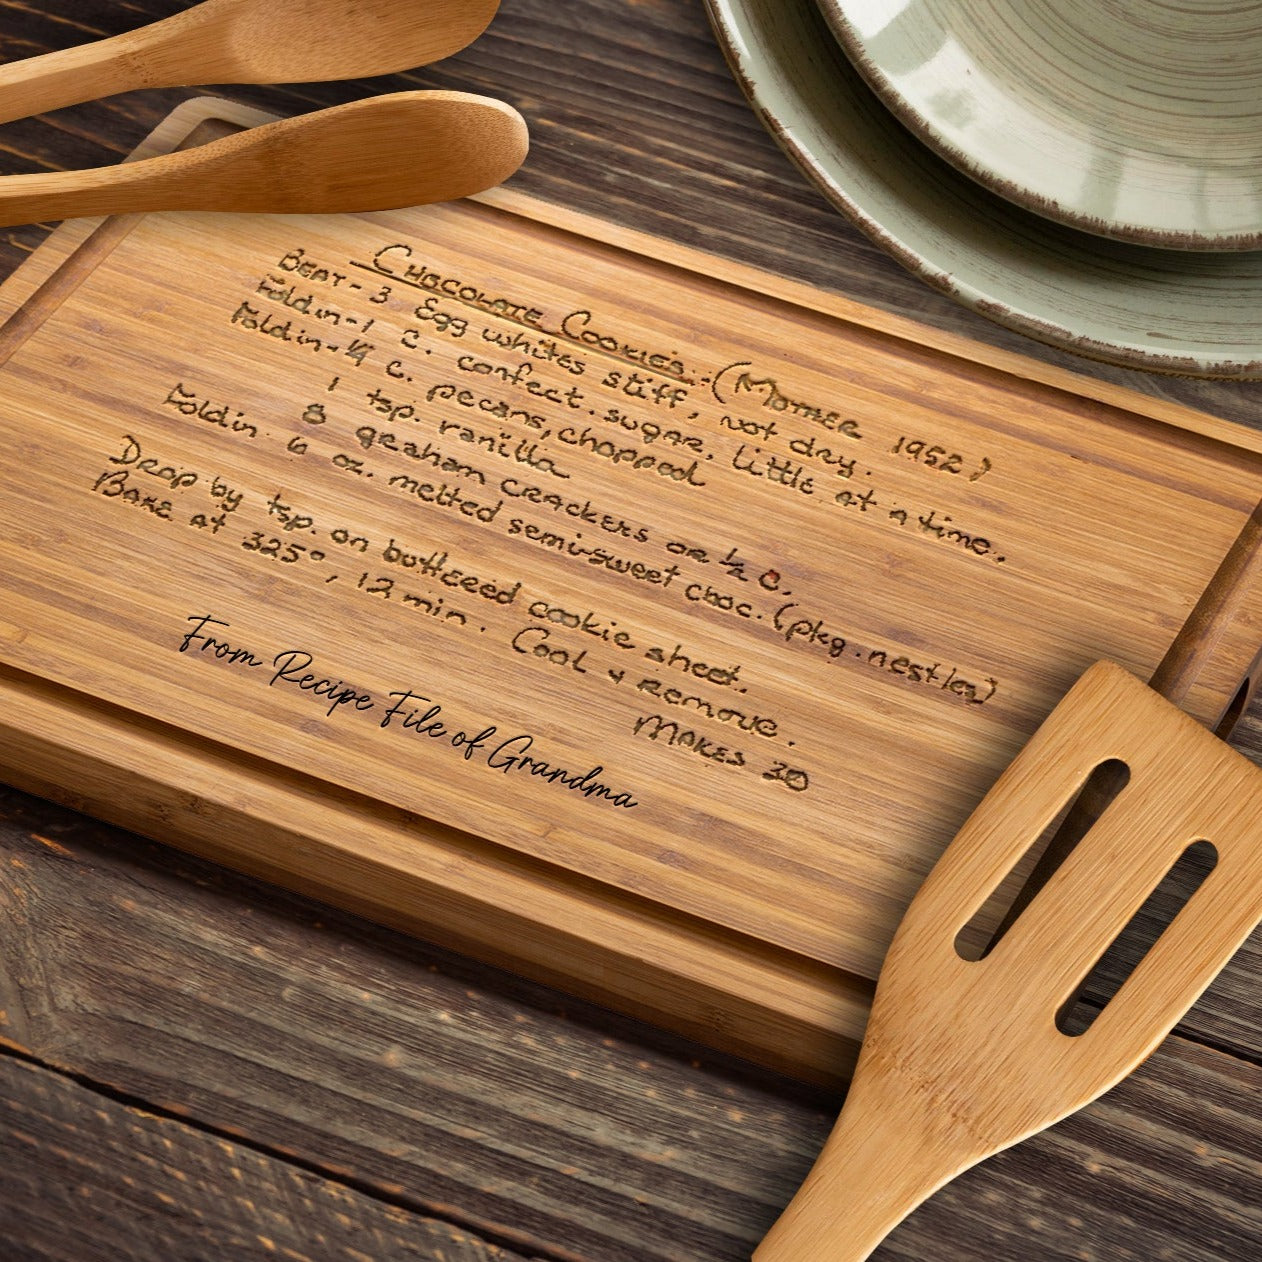 Chocolate Cookies - (Mother 1952)
Beat - 3 Egg whites stiff, not dry.
Fold in - 1 c. confect. sugar, little at a time.
Fold in - 1/4 c. pecans, chopped
1 tsp. vanilla
8 graham crackers or 1/2 c.
Fold in 6 oz. melted semi-sweet choc. (pkg. nestles)
Drop by tsp. on buttered cookie sheet.
Bake at 325°, 12 min. Cool & remove.
Makes 30
From Recipe File of Grandma